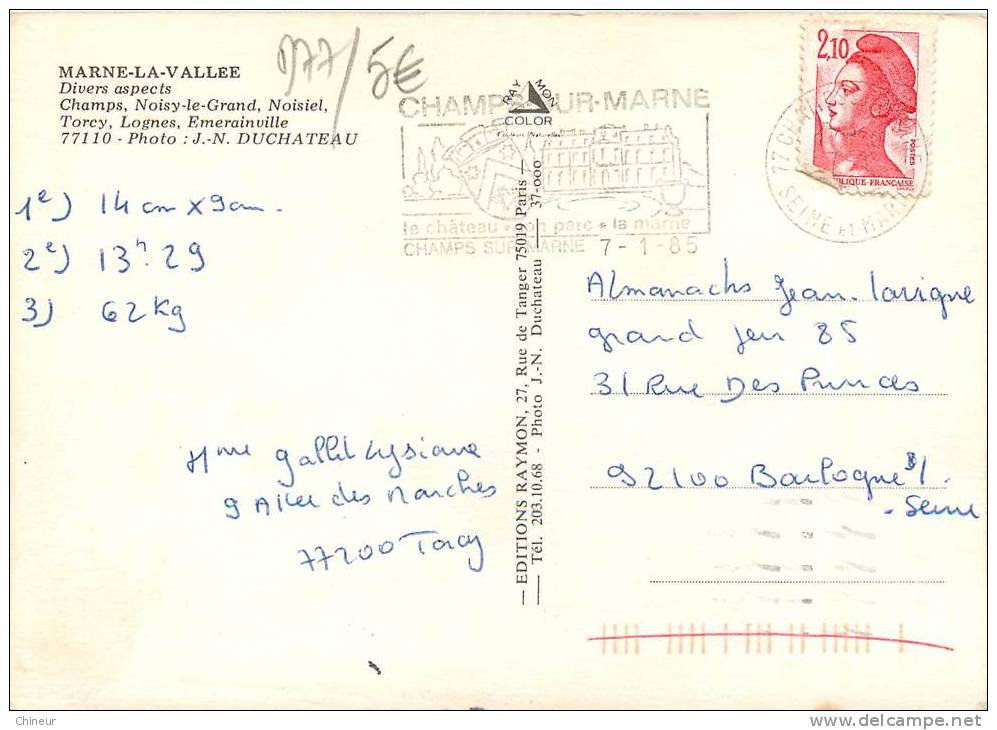 977/5€
MARNE-LA-VALLEE
Divers aspects
Champs, Noisy-le-Grand, Noisiel,
Torcy, Lognes, Emerainville
77110 - Photo : J.-N. DUCHATEAU
RAYMON
COLOR
CHAMPS-SUR-MARNE
le château • son parc • la marne
CHAMPS SUR MARNE 7-1-85
2,10
POSTES
BLIQUE FRANÇAISE
77 CHA
SEINE ET MARNE
1e) 14 cm x 9 cm.
2e) 13h.29
3) 62 kg
Mme Gallet Lysiane
9 Allée des Marches
77200 Torcy
— EDITIONS RAYMON, 27, Rue de Tanger 75019 Paris —
— Tél. 203.10.68 - Photo J.-N. Duchateau 37-000 —
Almanachs Jean-Lavigne
grand jeu 85
31 Rue Des
92100 Boulogne s/
- Seine
Chineur
www.delcampe.net